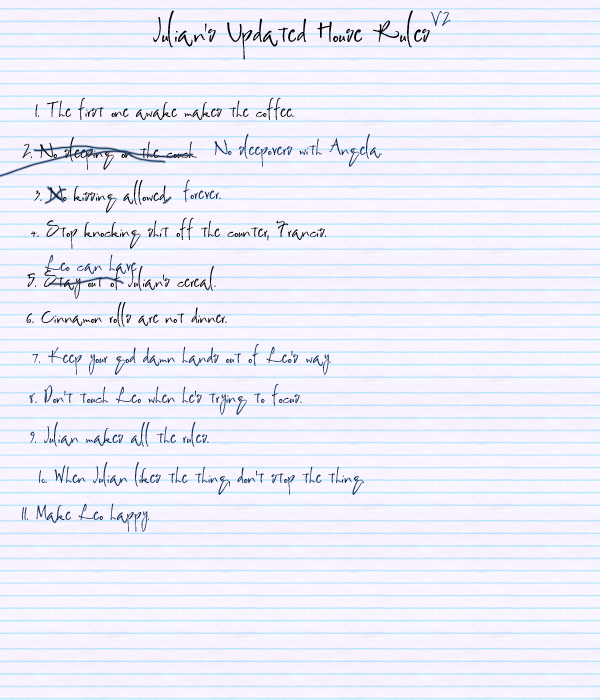 Julian's Updated House Rules V2
1. The first one awake makes the coffee.
2. No sleeping on the couch. No sleepovers with Angela
3. No kissing allowed forever.
4. Stop knocking shit off the counter, Francis.
Leo can have
5. Stay out of Julian's cereal.
6. Cinnamon rolls are not dinner.
7. Keep your god damn hands out of Leo's way
8. Don't touch Leo when he's trying to focus.
9. Julian makes all the rules.
10. When Julian likes the thing, don't stop the thing
11. Make Leo happy.